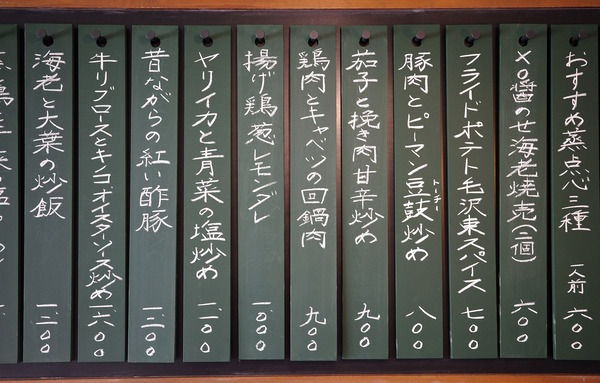 おすすめ蒸点心三種 一人前 六〇〇
XO醤のせ海老焼売(二個) 六〇〇
フライドポテト毛沢東スパイス 七〇〇
豚肉とピーマン豆鼓炒め 八〇〇
トーチー
茄子と挽き肉甘辛炒め 九〇〇
鶏肉とキャベツの回鍋肉 九〇〇
揚げ鶏葱レモンダレ 一、〇〇〇
ヤリイカと青菜の塩炒め 一、一〇〇
昔ながらの紅い酢豚 一、二〇〇
牛リブロースとキノコオイスターソース炒め 一、六〇〇
海老と大葉の炒飯 一、一〇〇